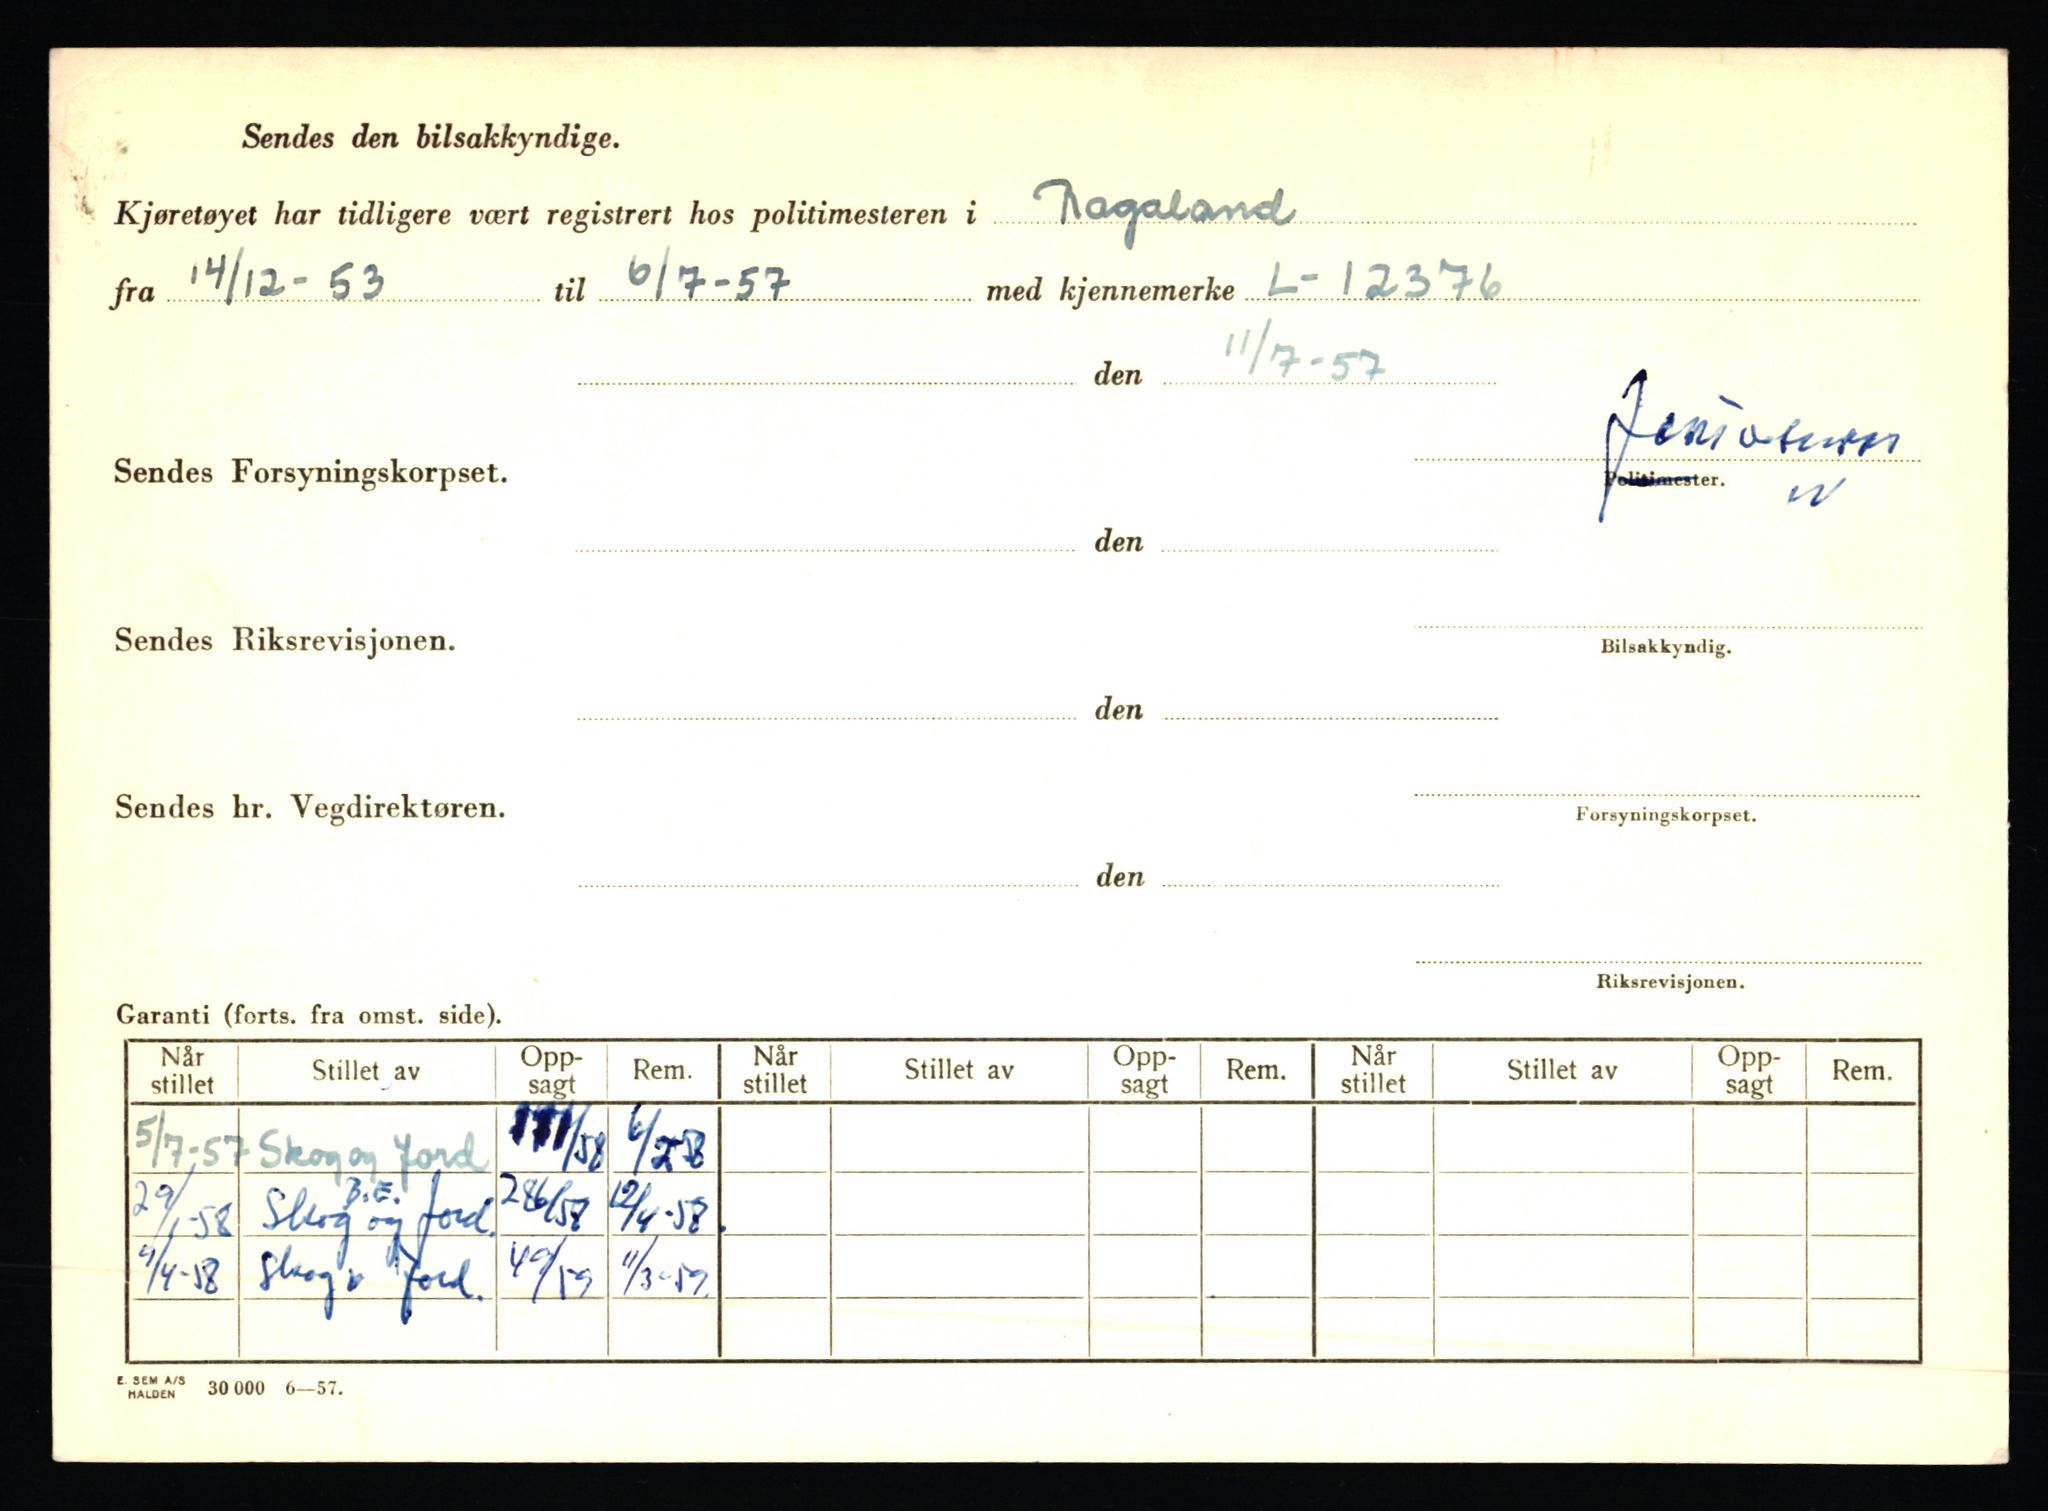 Sendes den bilsakkyndige.
Kjøretøyet har tidligere vært registrert hos politimesteren i Rogaland
fra 14/12-53 til 6/7-57 med kjennemerke L-12376
den 11/7-57
Sendes Forsyningskorpset.
Politimester.
den
Sendes Riksrevisjonen.
Bilsakkyndig.
den
Sendes hr. Vegdirektøren.
Forsyningskorpset.
den
Riksrevisjonen.
Garanti (forts. fra omst. side).
Når stillet Stillet av Opp-sagt Rem. Når stillet Stillet av Opp-sagt Rem. Når stillet Stillet av Opp-sagt Rem.
5/7-57 Skog og Jord /58
29/1-58 Skog B.E. og Jord. 286/58 12/4-58.
/4-58 Skog Jord. 49/59 11/3-59.
E. SEM A/S HALDEN 30 000 6—57.